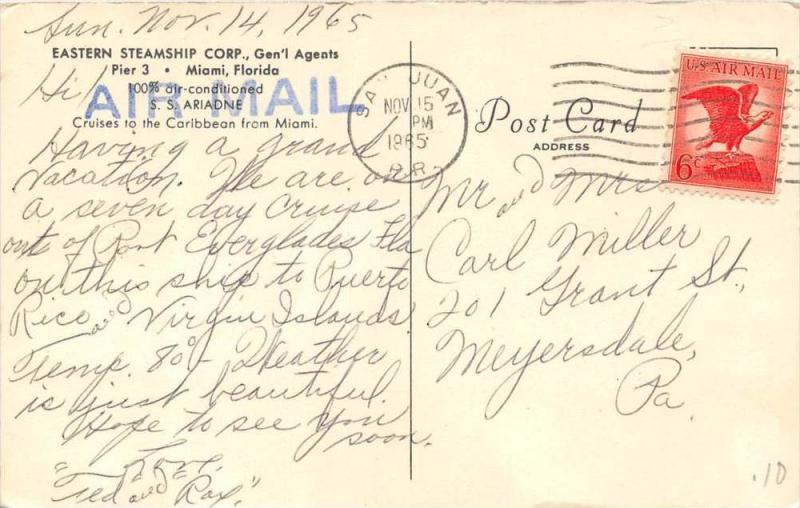 Sun. Nov. 14, 1965
EASTERN STEAMSHIP CORP., Gen'l Agents
Pier 3 • Miami, Florida
100% air-conditioned
S. S. ARIADNE
Cruises to the Caribbean from Miami.
AIR MAIL
Hi!
Having a grand
vacation. We are on
a seven day cruise
out of Port Everglades Fla
on this ship to Puerto
Rico and Virgin Islands.
Temp. 80° - Weather
is just beautiful.
Hope to see you
soon.
"Love,
Ted and Rax."
SAN JUAN
NOV 15
PM
1965
P.R.
Post Card
ADDRESS
U.S. AIR MAIL
6c
Mr and Mrs
Carl Miller
201 Grant St.,
Meyersdale,
Pa.
.10